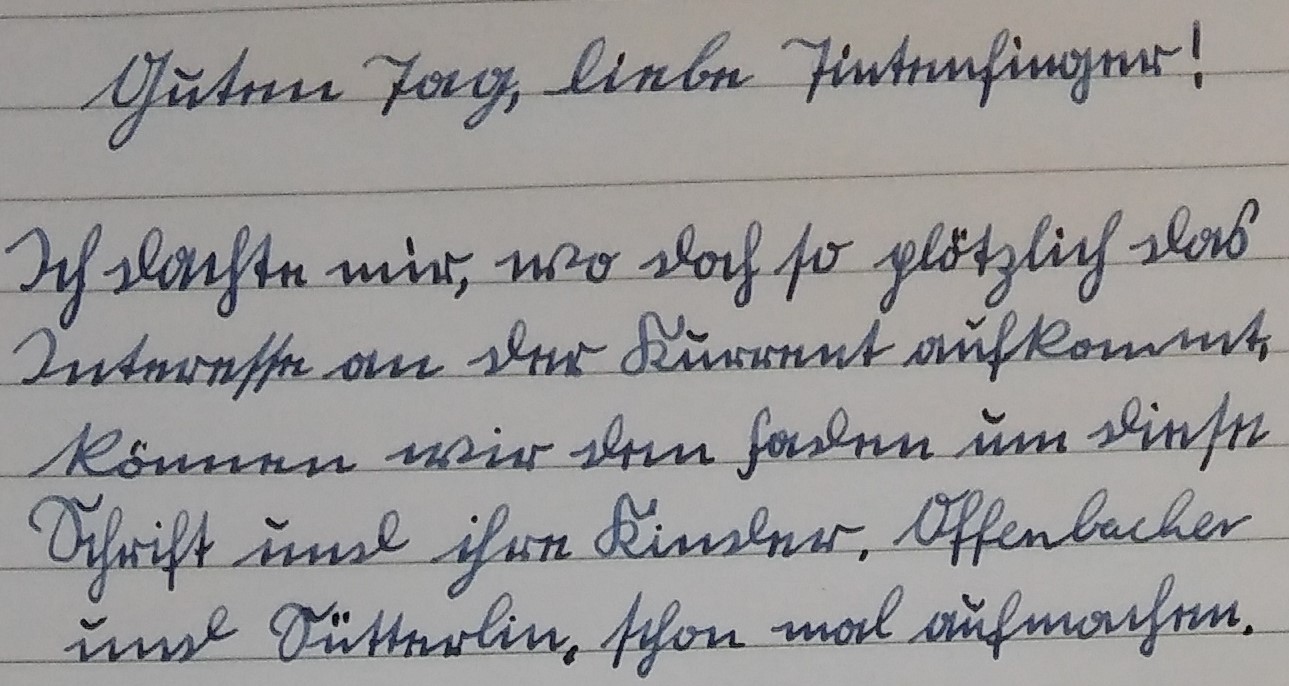 Guten Tag, liebe Tintenfinger!
Ich dachte mir, wo doch so plötzlich das
Interesse an der Kurrent aufkommt,
können wir den Faden um diese
Schrift und ihre Kinder, Offenbacher
und Sütterlin, schon mal aufmachen.